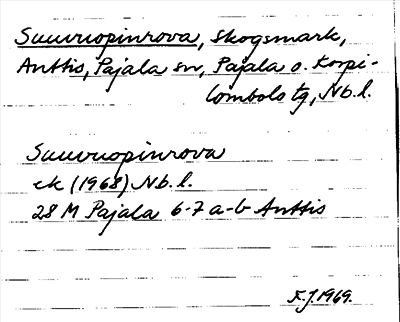 Suuvuopinrova, Skogsmark,
Anttis, Pajala sn, Pajala o. Korpi-
lombolo tg, Nb. l.
Suuvuopinrova
ek (1968) Nb. l.
28 M Pajala 6-7 a-b Anttis
F.J. 1969.